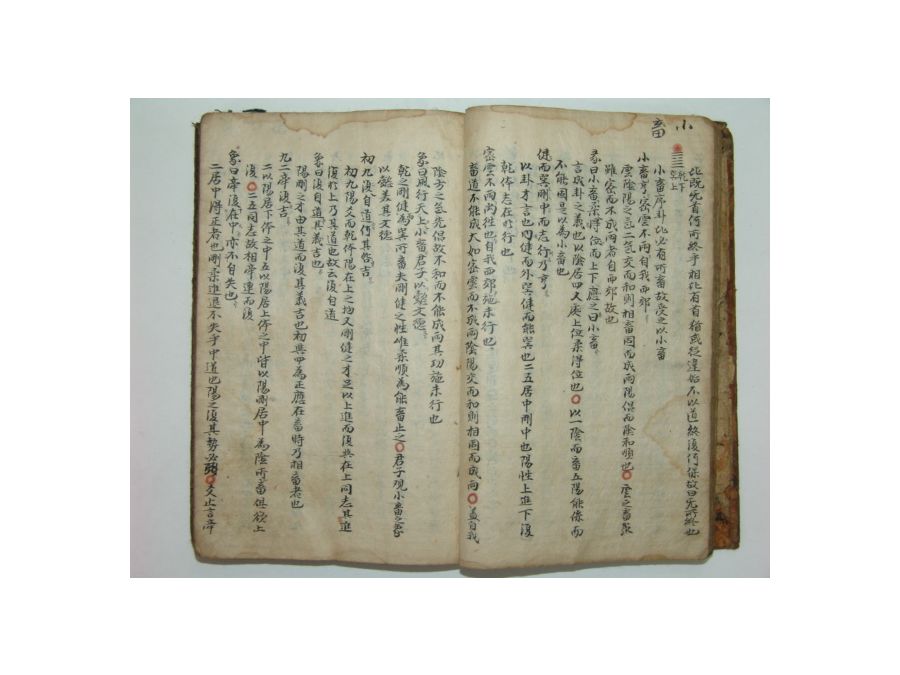 小畜
比既无首何所終乎相比有首猶或終違始不以道終復何保故曰无所終也
䷈ 乾下巽上
小畜序卦比必有所畜故受之以小畜
小畜亨密雲不雨自我西郊。
雲陰陽之氣二氣交而和則相畜固而成雨陽倡而陰和順也○雲之畜聚
雖密而不成雨者自西郊故也
彖曰小畜柔得位而上下應之曰小畜。
言成卦之義也以陰居四又處上位柔得位也○以一陰而畜五陽能係而
不能固是以為小畜也
健而巽剛中而志行乃亨。
以卦才言也內健而外巽健而能巽也二五居中剛中也陽性上進下復
乾体志在於行也
密雲不雨尚往也自我西郊施未行也。
畜道不能成大如密雲而不成雨陰陽交而和則相固而成雨○蓋自我
陰方之氣先倡故不和而不能成雨其功施未行也
象曰風行天上小畜君子以懿文德。
乾之剛健為巽所畜夫剛健之性惟柔順為能畜止之○君子观小畜之義
以懿美其文德
初九復自道何其咎吉。
初九陽爻而乾体陽在上之物又剛健之才足以上進而復與在上同志其進
復於上乃其道也故云復自道
象曰復自道其義吉也。
陽剛之才由其道而復其義吉也初與四為正應在畜時乃相畜者也
九二牽復吉。
二以陽居下体之中五以陽居上体之中皆以陽剛居中為陰所畜俱欲上
復○二五同志故相牽連而復
象曰牽復在中亦不自失也。
二居中得正者也剛柔進退不失乎中道也陽之復其勢必強○爻止言牽